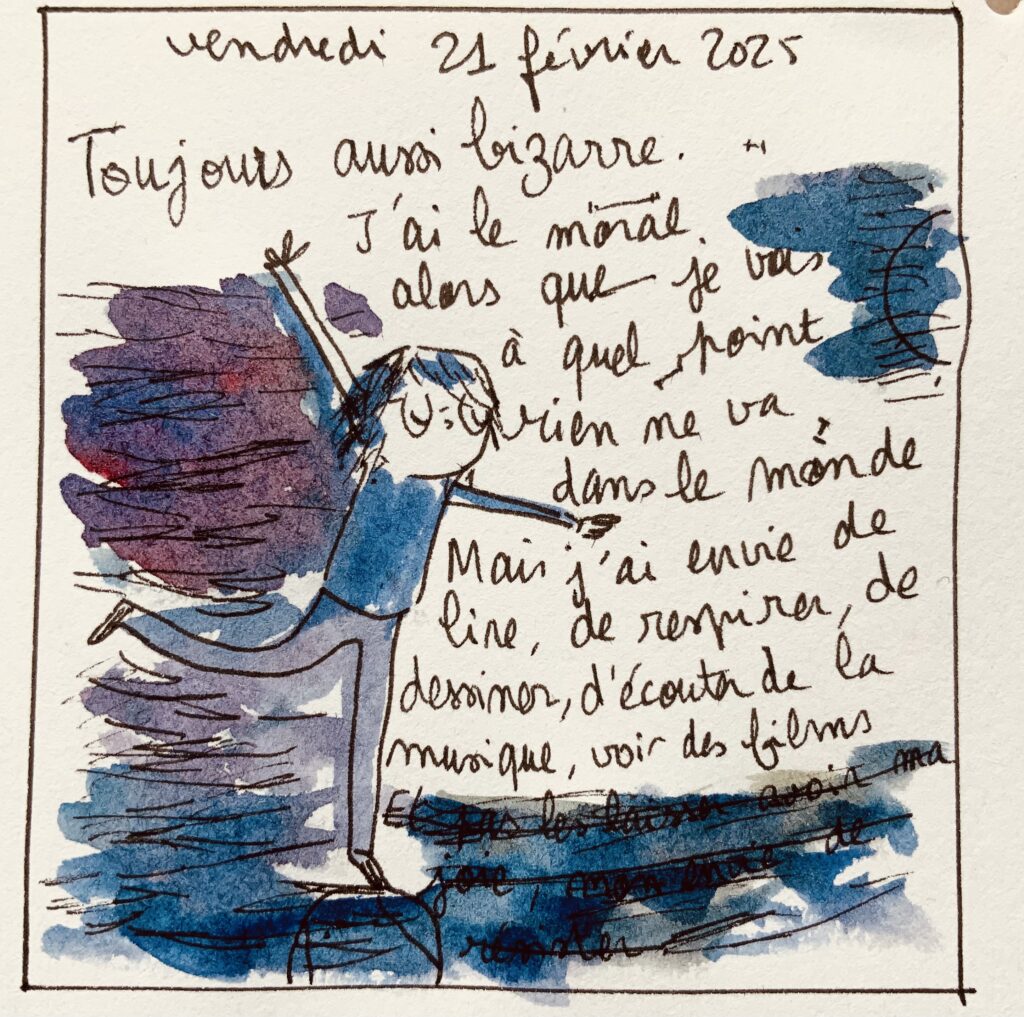 vendredi 21 février 2025
Toujours aussi bizarre.
J'ai le moral.
alors que je vois
à quel point
rien ne va
dans le monde
Mais j'ai envie de
lire, de respirer, de
dessiner, d'écouter de la
musique, voir des films
Et pas les laisser avoir ma
joie, mon envie de
résister.